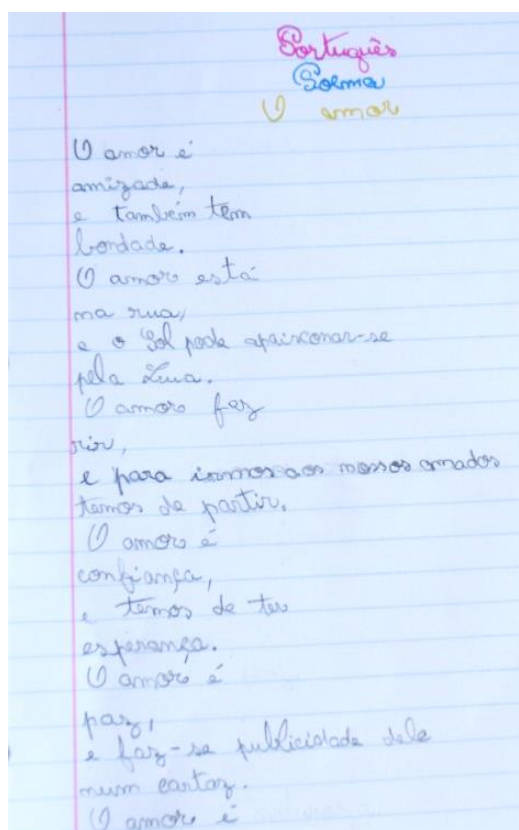 Português
Poema
O amor
O amor é
amizade,
e também tem
bondade.
O amor está
na rua,
e o Sol pode apaixonar-se
pela Lua.
O amor faz
rir,
e para irmos aos nossos amados
temos de partir.
O amor é
confiança,
e temos de ter
esperança.
O amor é
paz,
e faz-se publicidade dele
num cartaz.
O amor é